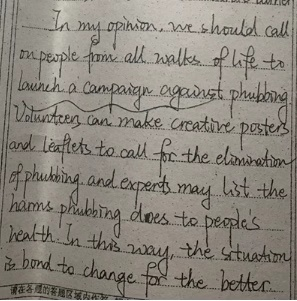 In my opinion, we should call
on people from all walks of life to
launch a campaign against phubbing.
Volunteers can make creative posters
and leaflets to call for the elimination
of phubbing, and experts may list the
harms phubbing does to people's
health. In this way, the situation
is bond to change for the better.
请在各题的答题区域内作答